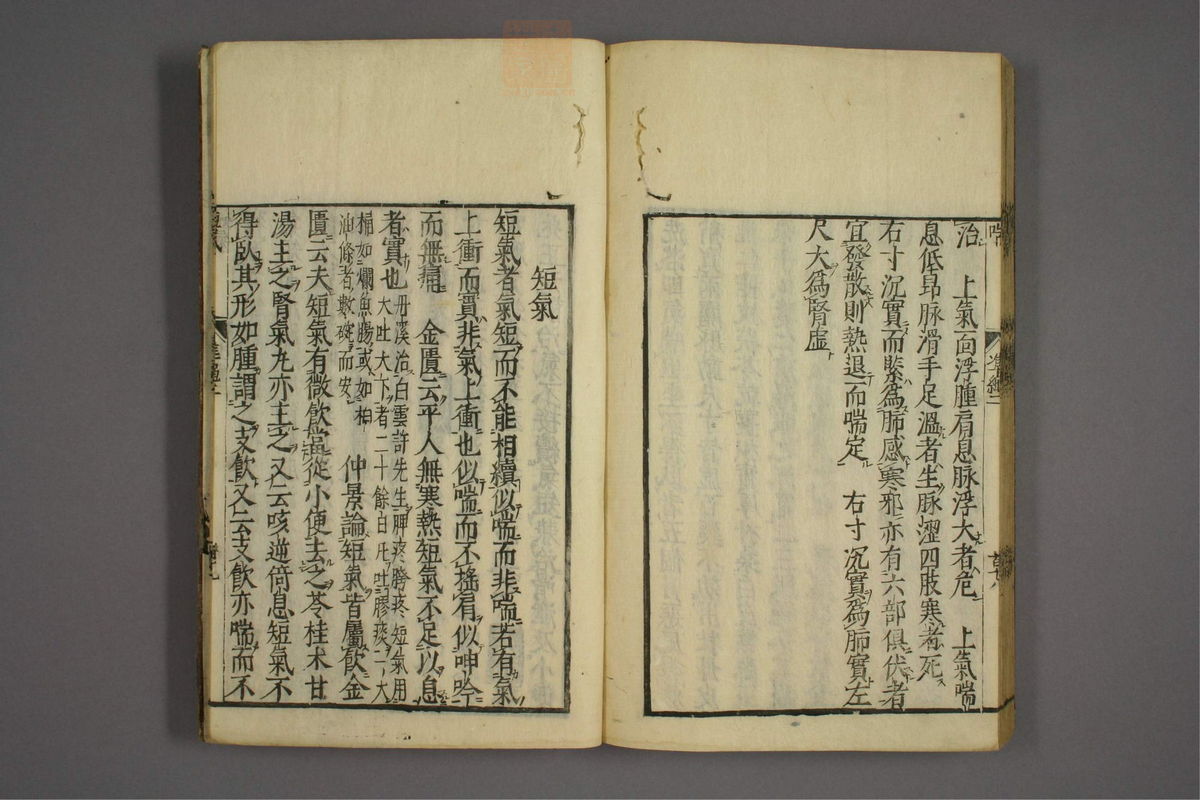 治　上氣面浮腫肩息脉浮大者危　上氣喘
息低昂脉滑手足溫者生脉澀四肢寒者死
右寸沉實而緊爲肺感寒邪亦有六部俱伏者
宜發散則熱退而喘定　右寸沉實爲肺實左
尺大爲腎虛
短氣
短氣者氣短而不能相續似喘而非喘若有氣
上衝而實非氣上衝也似喘而不搖肩似呻吟
而無痛　金匱云平人無寒熱短氣不足以息
者實也丹溪治白雲許先生脾疼胯疼短氣用
大吐大下者二十餘日凡吐膠痰一二大
桶如爛魚腸或如柏
油條者數碗而安　仲景論短氣皆屬飲金
匱云夫短氣有微飲當從小便去之苓桂朮甘
湯主之腎氣丸亦主之又云咳逆倚息短氣不
得臥其形如腫謂之支飲又云支飲亦喘而不